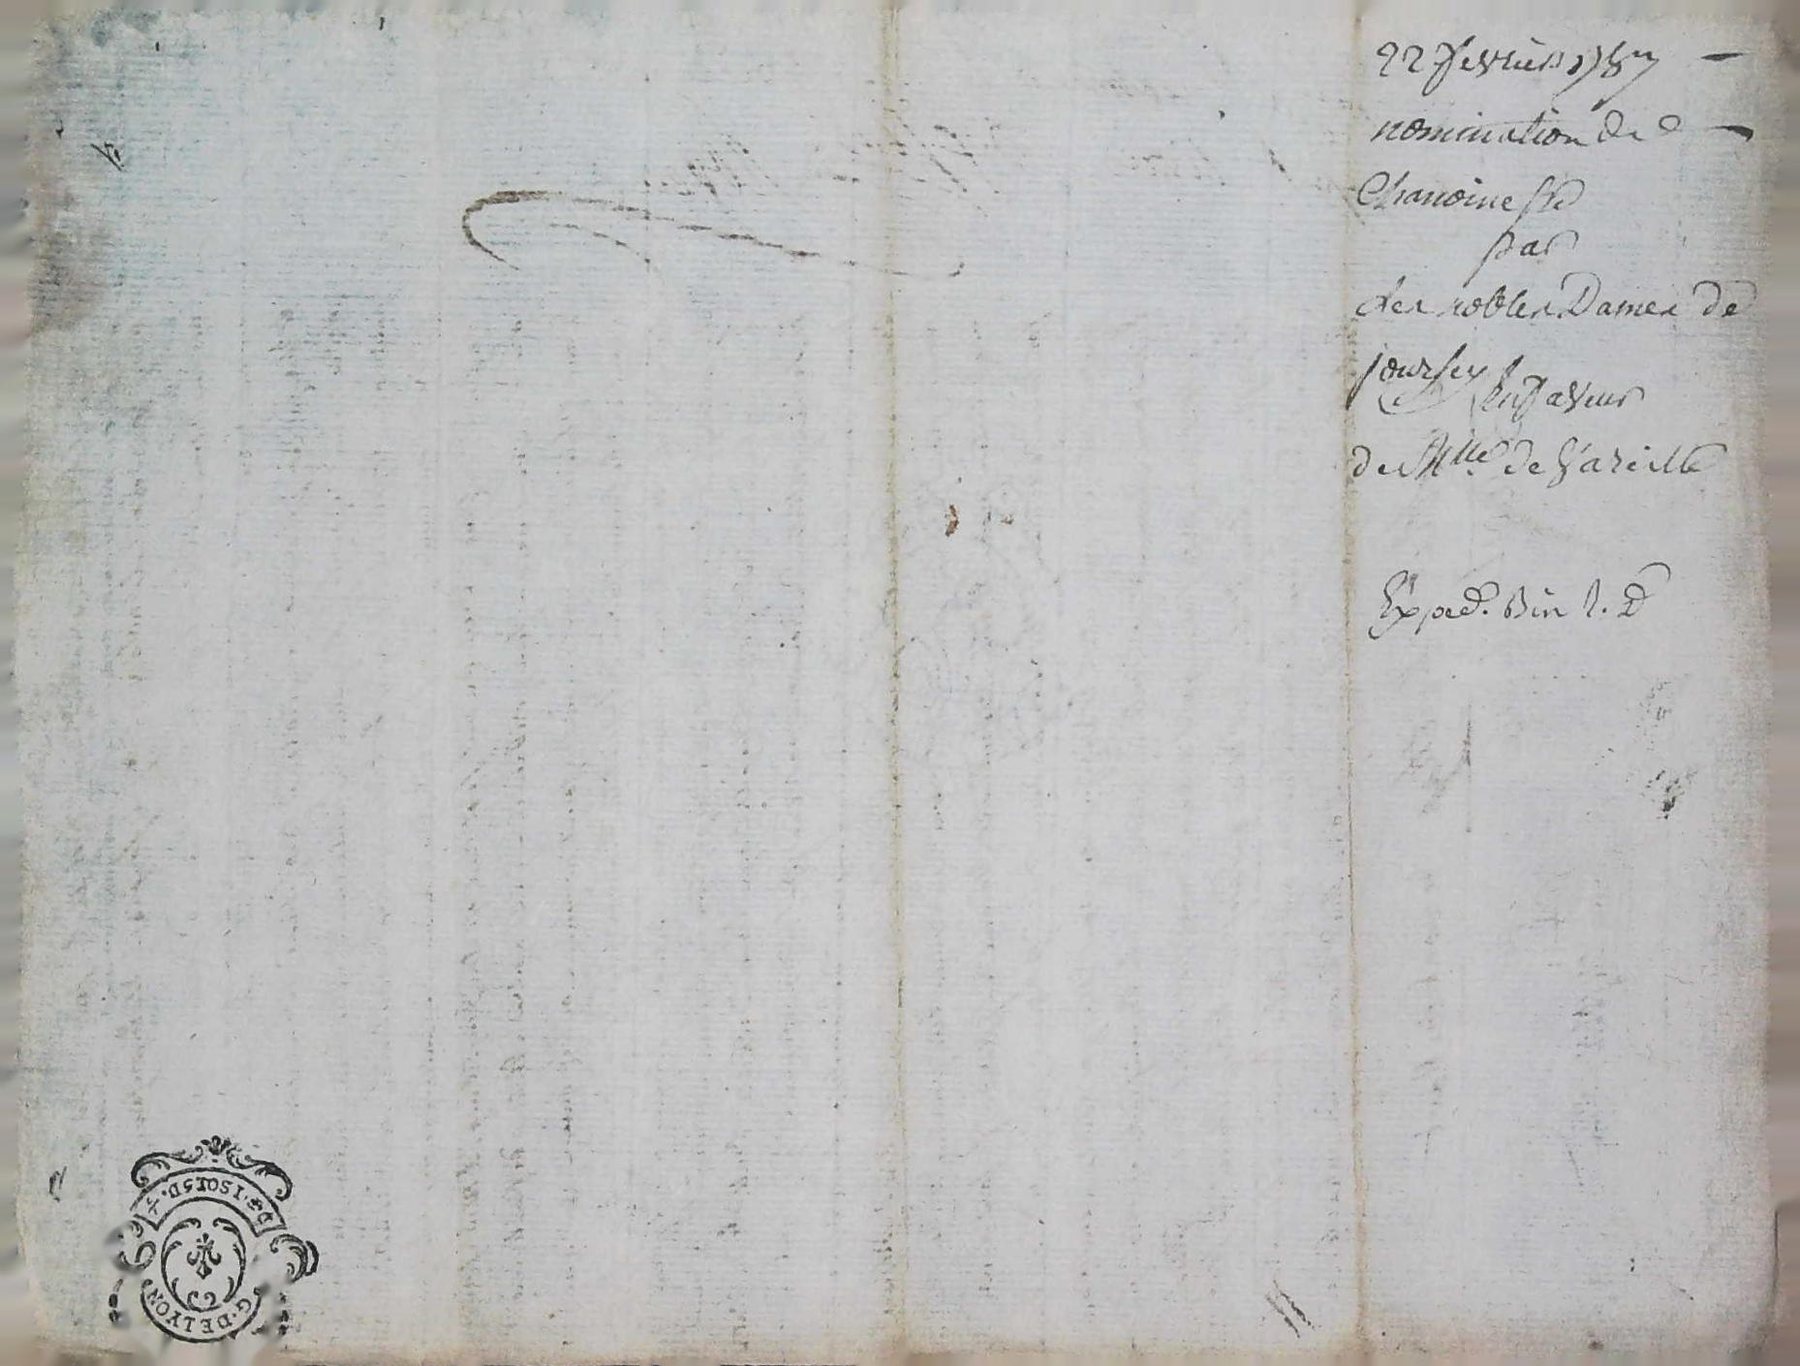 22 fevrier 1787
nomination de
Chanoinesse
par
les nobles Dames de
joursey En faveur
de Mlle de Vareille
Exped. Bin l. D
D4. 1SOLS D.
G. DE LYON